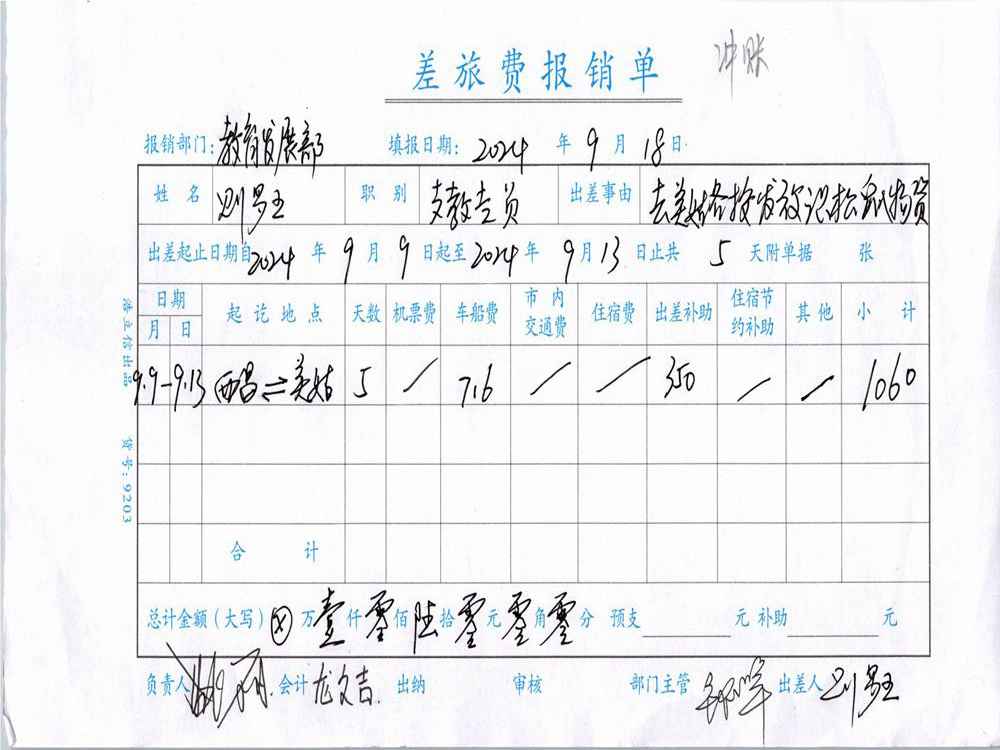 差旅费报销单 冲账
报销部门: 教育发展部 填报日期: 2024 年 9 月 18 日
姓名 职别 支教专员 出差事由 去美姑各校发放 物资
出差起止日期自 2024 年 9 月 9 日起至 2024 年 9 月 13 日止共 5 天附单据 张
日期 起讫地点 天数 机票费 车船费 市内交通费 住宿费 出差补助 住宿节约补助 其他 小计
月 日
9.9-9.13 西昌⇌美姑 5 / 716 / / 350 / / 1060
合计
总计金额(大写) ⊗ 万 壹 仟 零 佰 陆 拾 零 元 零 角 零 分 预支 元 补助 元
负责人 会计 龙文吉. 出纳 审核 部门主管 出差人
浩立信出品 货号:9203